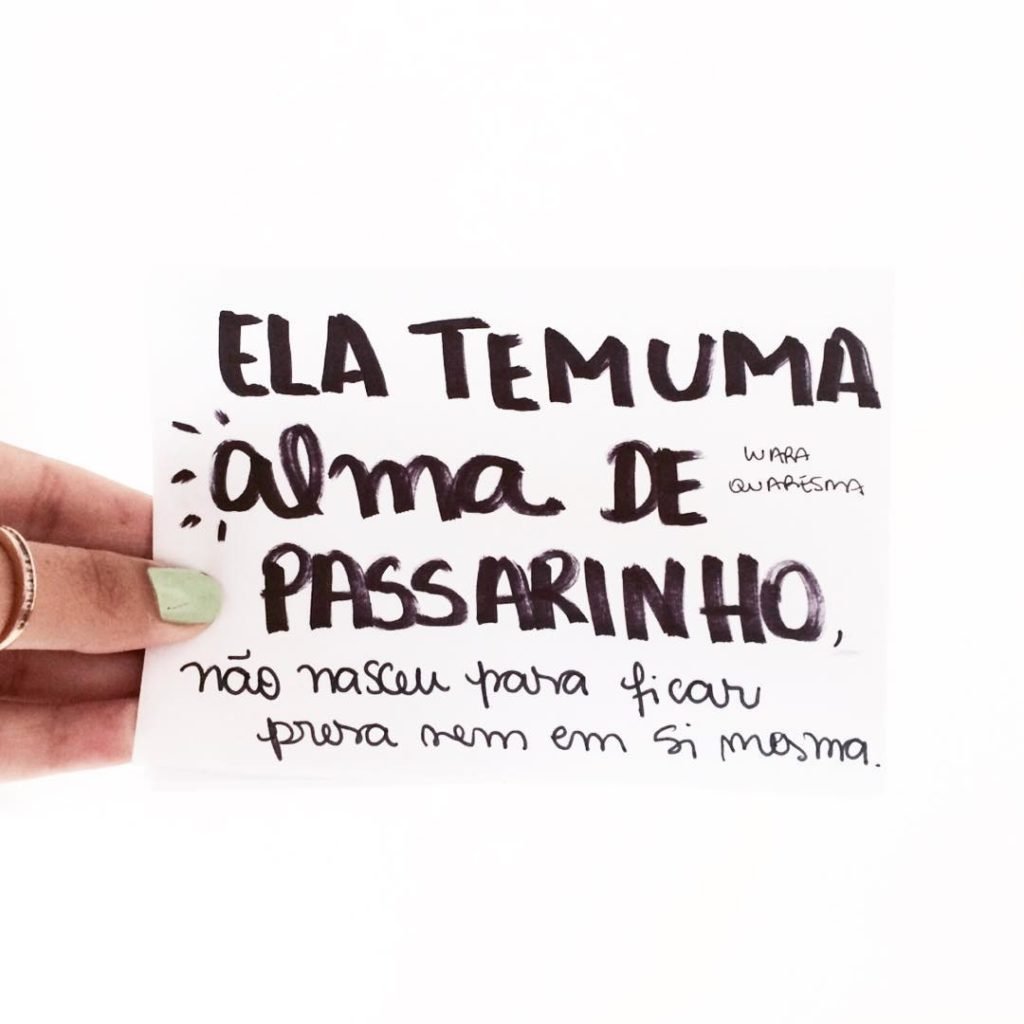 ELA TEM UMA
alma DE
WARA
QUARESMA
PASSARINHO,
não nasceu para ficar
presa nem em si mesma.